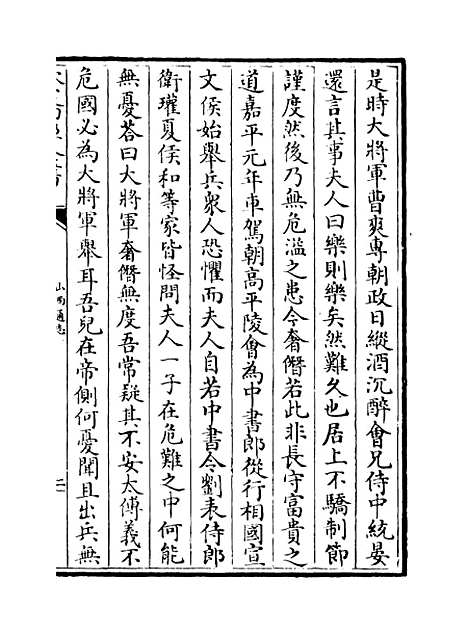 是時大將軍曹爽專朝政日縱酒沉醉會兄侍中統晏
還言其事夫人曰樂則樂矣然難久也居上不驕制節
謹度然後乃無危溢之患今奢僭若此非長守富貴之
道嘉平元年車駕朝高平陵會為中書郎從行相國宣
文侯始舉兵衆人恐懼而夫人自若中書令劉表侍郎
衛瓘夏侯和等家皆怪問夫人一子在危難之中何能
無憂荅曰大將軍奢僭無度吾常疑其不安太傅義不
危國必為大將軍舉耳吾兒在帝側何憂聞且出兵無
山西通志